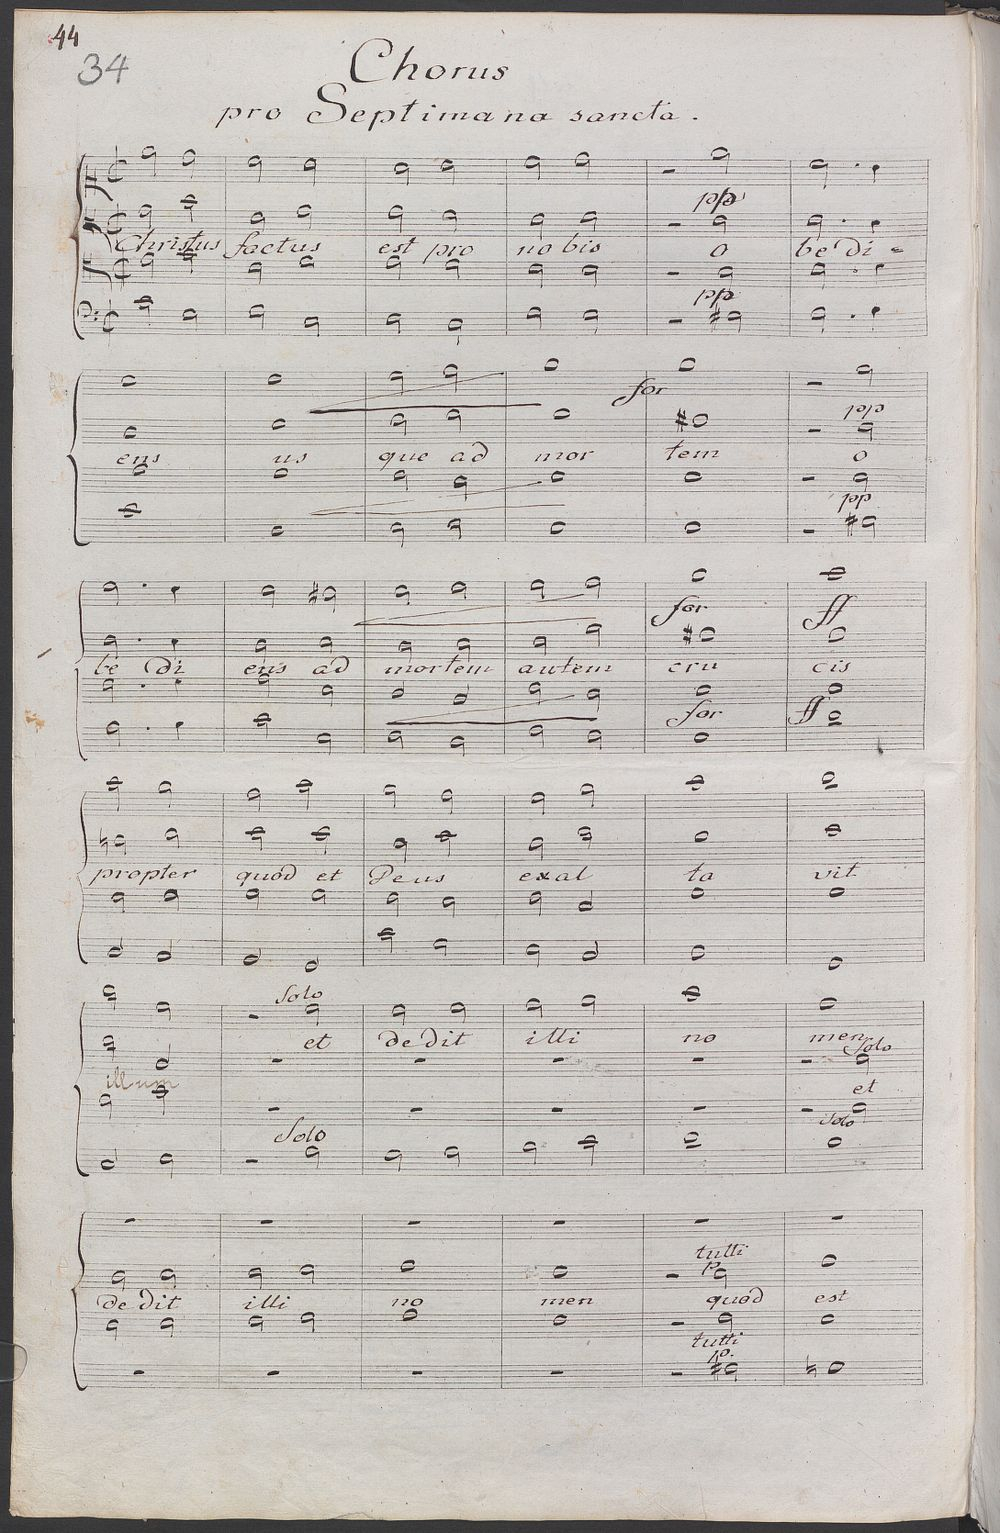 44
34
Chorus
pro Septimana sancta.
pp
Christus factus est pro nobis o be di-
pp
for
pp
ens us que ad mor tem o
pp
for ff
be di ens ad mortem autem cru cis
for ff
propter quod et Deus exal ta vit
Solo
et de dit illi no men
Solo
illum et
Solo Solo
tutti
p
de dit illi no men quod est
tutti
po.